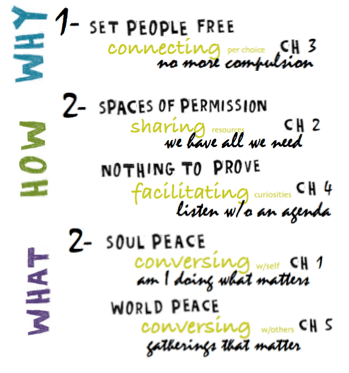 WHY
1- SET PEOPLE FREE
connecting per choice CH 3
no more compulsion
HOW
2- SPACES OF PERMISSION
sharing resources CH 2
we have all we need
NOTHING TO PROVE
facilitating curiosities CH 4
listen w/o an agenda
WHAT
2- SOUL PEACE
conversing w/self CH 1
am I doing what matters
WORLD PEACE
conversing w/others CH 5
gatherings that matter